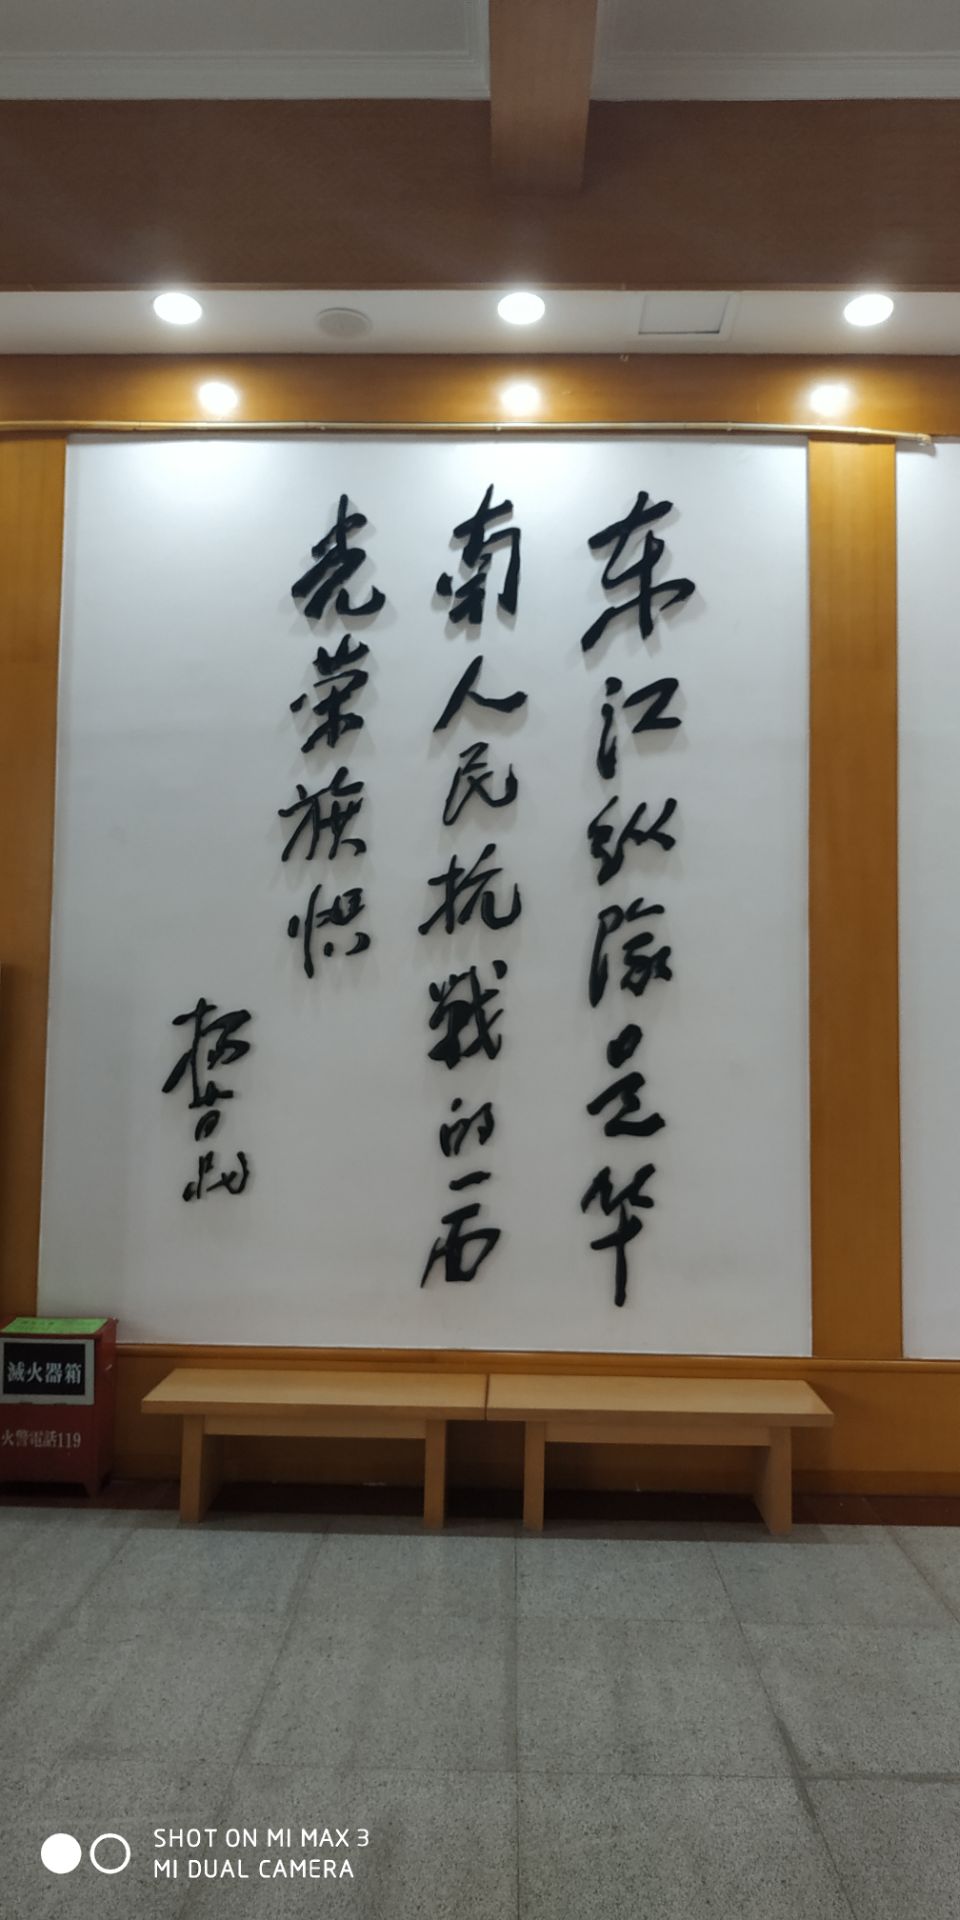 东江纵隊是华
南人民抗戰的一面
光荣旗帜
杨尚昆
滅火器箱
火警電話119
SHOT ON MI MAX 3
MI DUAL CAMERA